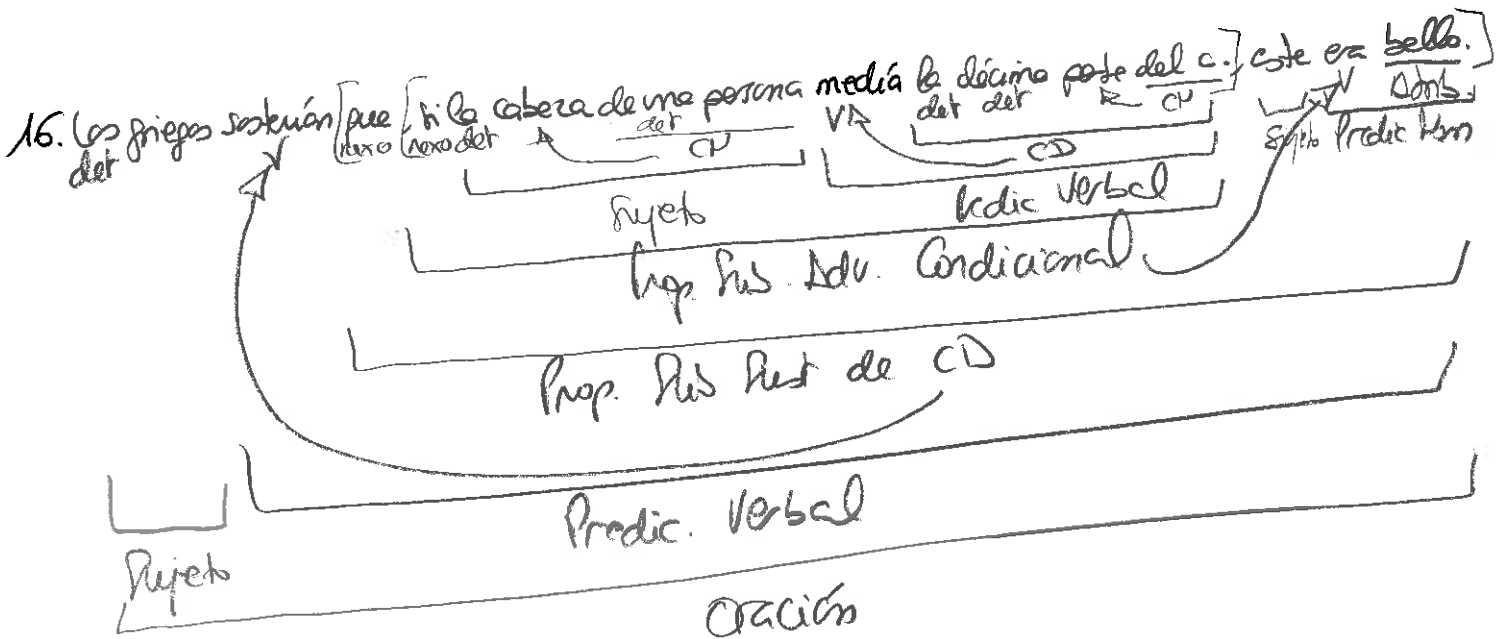 16. Los griegos sostenían [que [si la cabeza de una persona medía la décima parte del c.], este era bello.]
det V nexo nexo det det V det det CN V Atrib.
CN CD Sujeto Predic Nom
Sujeto Predic Verbal
Prop. Sub. Adv. Condicional
Prop. Sub Sust de CD
Predic. Verbal
Sujeto
Oración